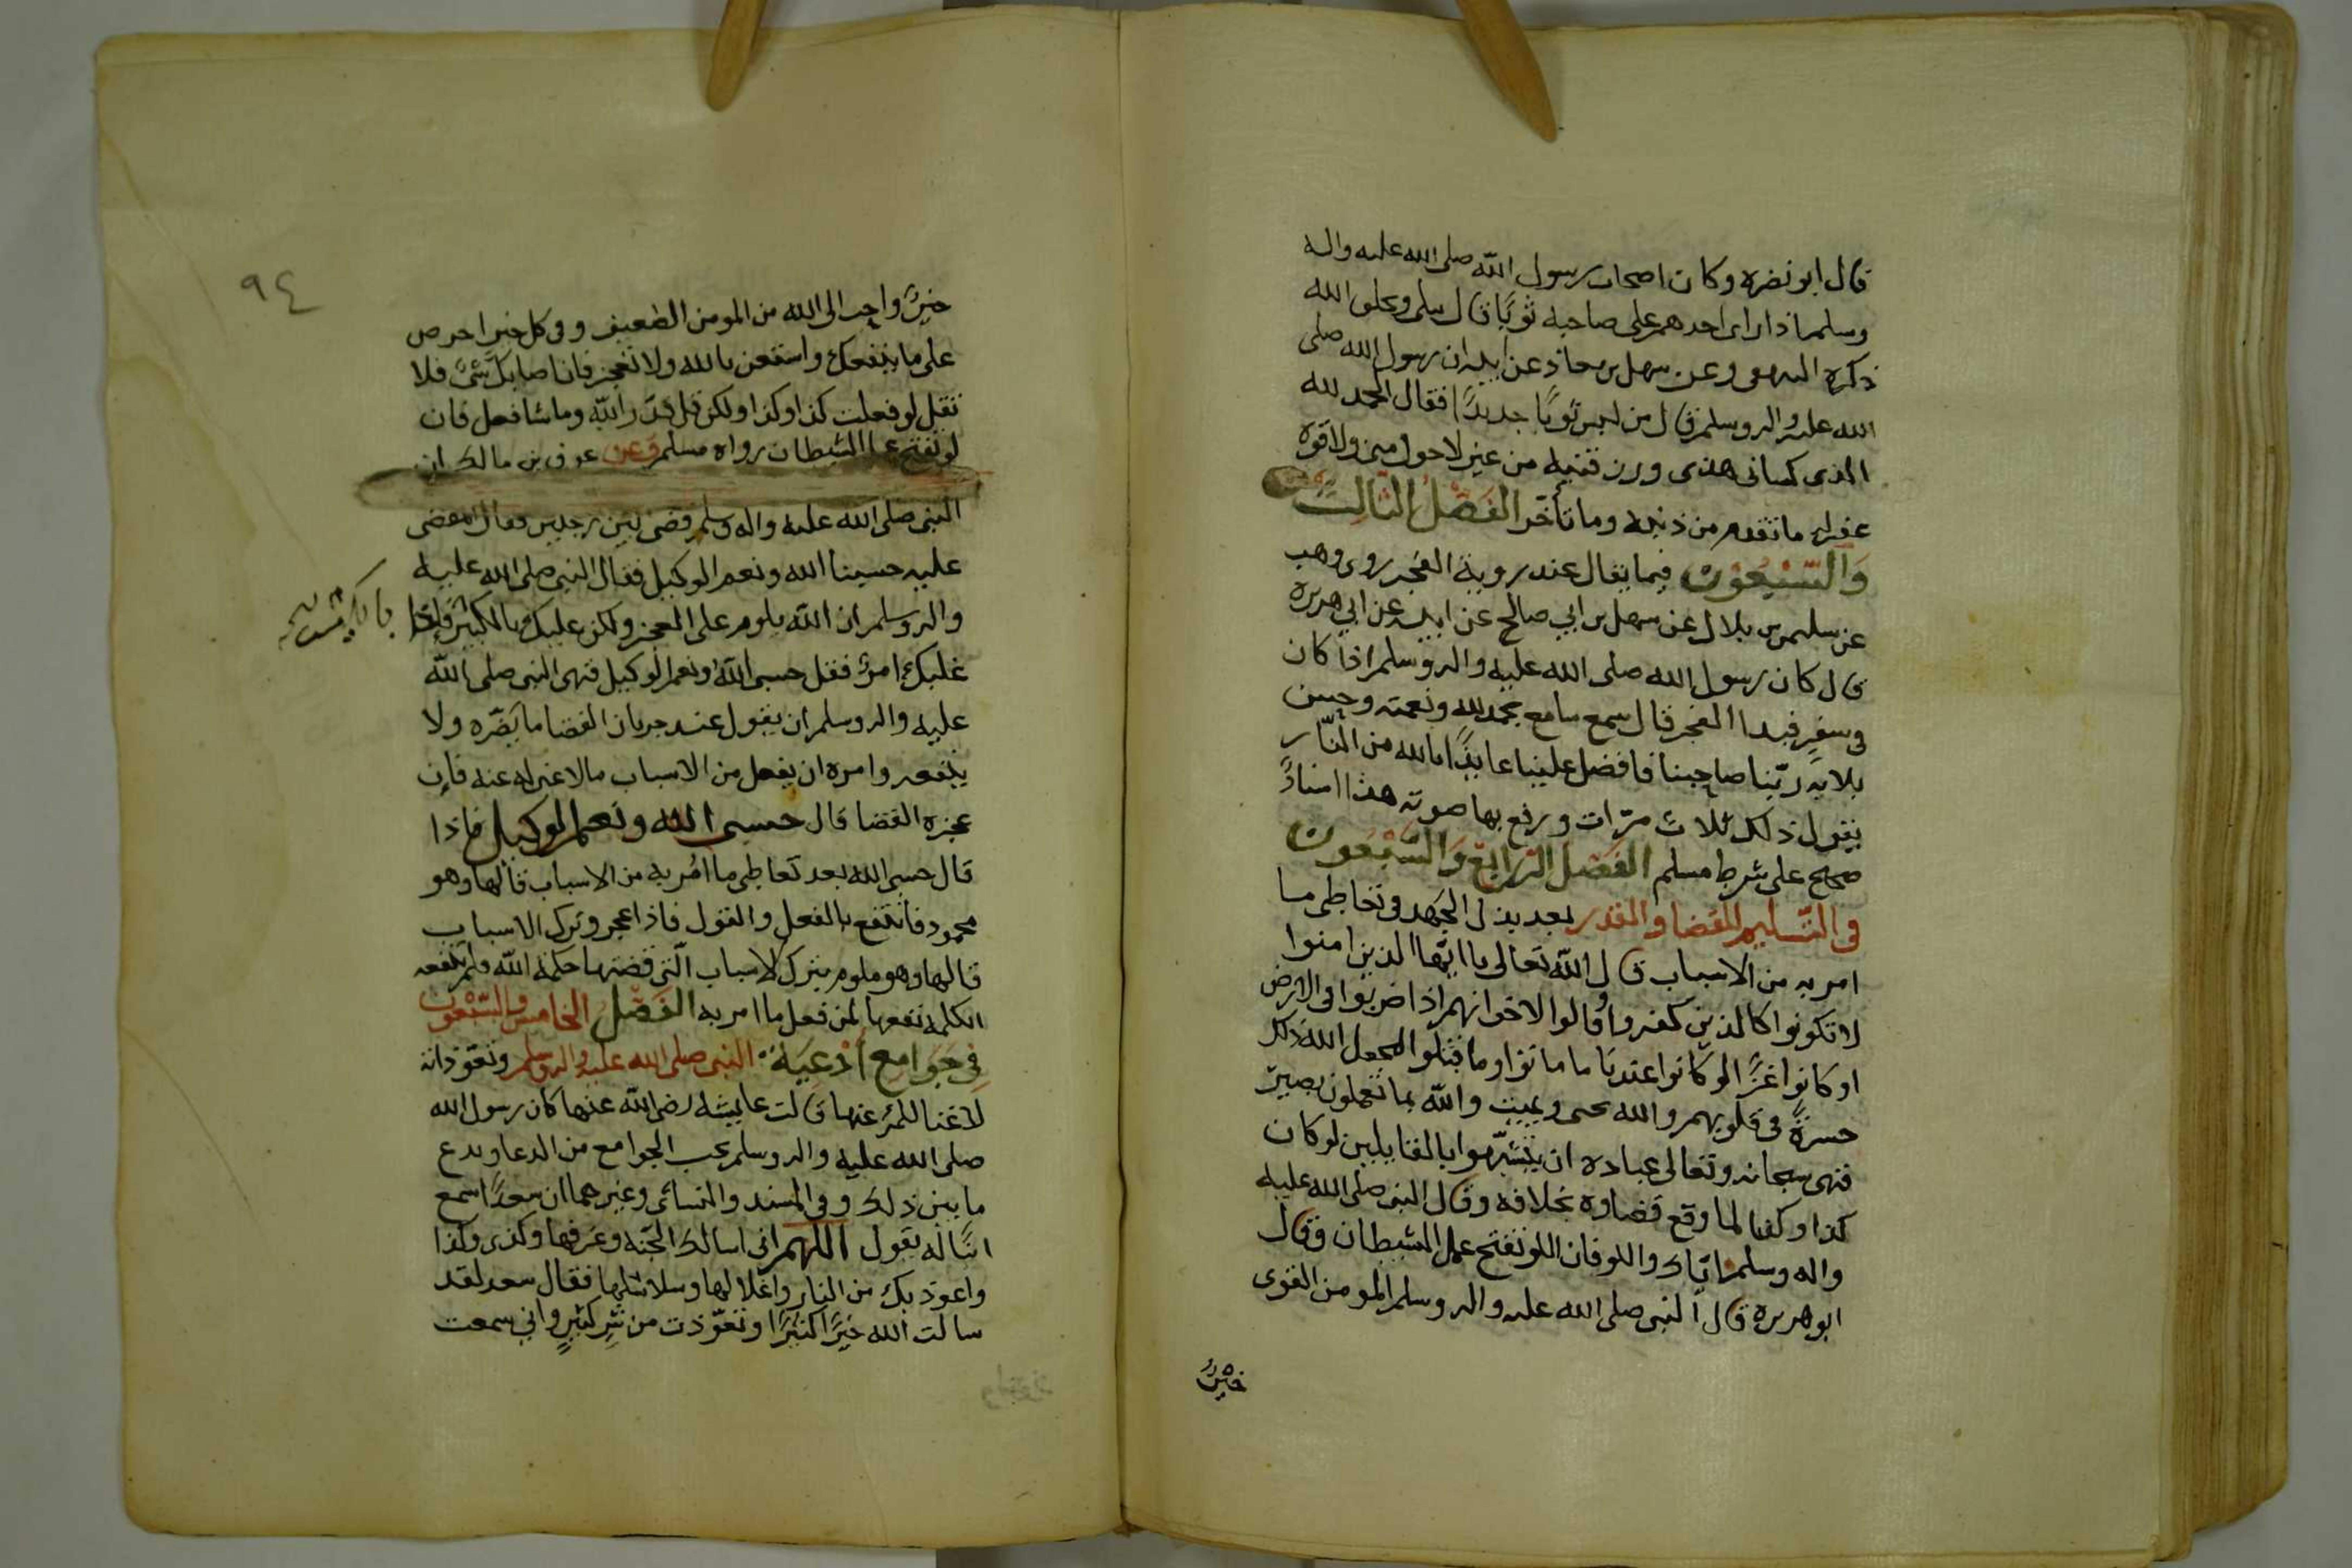 قال ابو نضره وكان اصحاب رسول الله صلى الله عليه واله
وسلم اذا راى احدهم على صاحبه ثوبًا قال تبلى ويخلق الله
ذكره البيهقى وعن سهل بن معاذ عن ابيه ان رسول الله صلى
الله عليه واله وسلم قال من لبس ثوبًا جديدًا فقال الحمد لله
الذى كسانى هذى ورزقنيه من غير لاحول منى ولاقوة
غفر له ما تقدم من ذنبه وما تأخر الفَصْلُ الثَّالِثُ
وَالسَّبْعُون فيما يقال عند روية الفجر روى وهب
عن سليمن بن بلال عن سهل بن ابي صالح عن ابيه عن ابي هريره
قال كان رسول الله صلى الله عليه واله وسلم اذا كان
فى سفرٍ فبدا الفجر قال سمع سامع بحمد لله ونعمته وحسن
بلايه ربّنا صاحبنا فافضل علينا عايذًا بالله من النّار
يقول ذلك ثلاث مرّات ورفع بها صوته هذا اسنادٌ
صحيح على شرط مسلم الفَصْل الرّابِع وَالسَّبْعُون
فى التّسليم للقضا والقدر بعد بذل الجَهد فى تعاطى ما
امر به من الاسباب قال الله تعالى يا ايّها الذين امنوا
لا تكونوا كالذين كفروا وقالوا لاخوانهم اذا ضربوا فى الارض
او كانوا غزًّا لو كانوا عندنا ما ماتوا وما قتلوا ليجعل الله ذلك
حسرةً فى قلوبهم والله يحى ويميت والله بما تعملون بصيرٌ
فنهى سبحانه وتعالى عباده ان يتشبّهوا بالقايلين لو كان
كذا وكذا لما وقع قضاوه بخلافه وقال النبى صلى الله عليه
واله وسلم ايّاك واللو فان اللو تفتح عمل الشيطان وقال
ابو هريره قال النبى صلى الله عليه واله وسلم المومن القوى
خيرٌ
٩٤
خيرٌ واحب الى الله من المومن الضعيف وفى كل خير احرص
على ما ينفعك واستعن بالله ولا تعجز فان اصابك شىٌ فلا
تقل لو فعلت كذا وكذا ولكن قل قدّر الله وما شا فعل فان
لو تفتح عمل الشيطان رواه مسلم وعن عوف بن مالك ان
النبى صلى الله عليه واله وسلم قضى بين رجلين فقال المقضى
عليه حسبنا الله ونعم الوكيل فقال النبى صلى الله عليه
واله وسلم ان الله يلوم على العجز ولكن عليك بالكيس فاذا
غلبك امرٌ فقل حسبى الله ونعم الوكيل فنهى النبى صلى الله
عليه واله وسلم ان يقول عند جريان القضا ما يضرّه ولا
ينفعه وامره ان يفعل من الاسباب مالا غنى له عنه فان
عجزه القضا قال حسبى الله ونعم الوكيل فاذا
قال حسبى الله بعد تعاطى ما اُمر به من الاسباب قالها وهو
محمود فانتفع بالفعل والقول فاذا عجز وترك الاسباب
قالها وهو ملوم بترك الاسباب الّتى قضتها حكمة الله ولم تنفعه
الكلمه نفعها لمن فعل ما امر به الفَصْل الخامس والسّبعون
فِى جَوَامع أَدْعِيَة النبى صلى الله عليه واله وسلم وتعوّذاته
لا غنا للمرٔ عنها قالت عايشه رضى الله عنها كان رسول الله
صلى الله عليه واله وسلم يحب الجوامع من الدعا ويدع
ما بين ذلك وفى المسند والنسائى وغيرهما ان سعدًا سمع
ابنًا له يقول اللهم انى اسالك الجنّه وغرفها وكذى وكذا
واعوذ بك من النار واغلالها وسلاسلها فقال سعد لقد
سالت الله خيرًا كثيرًا وتعوّذت من شرٍ كثيرٍ وانى سمعت